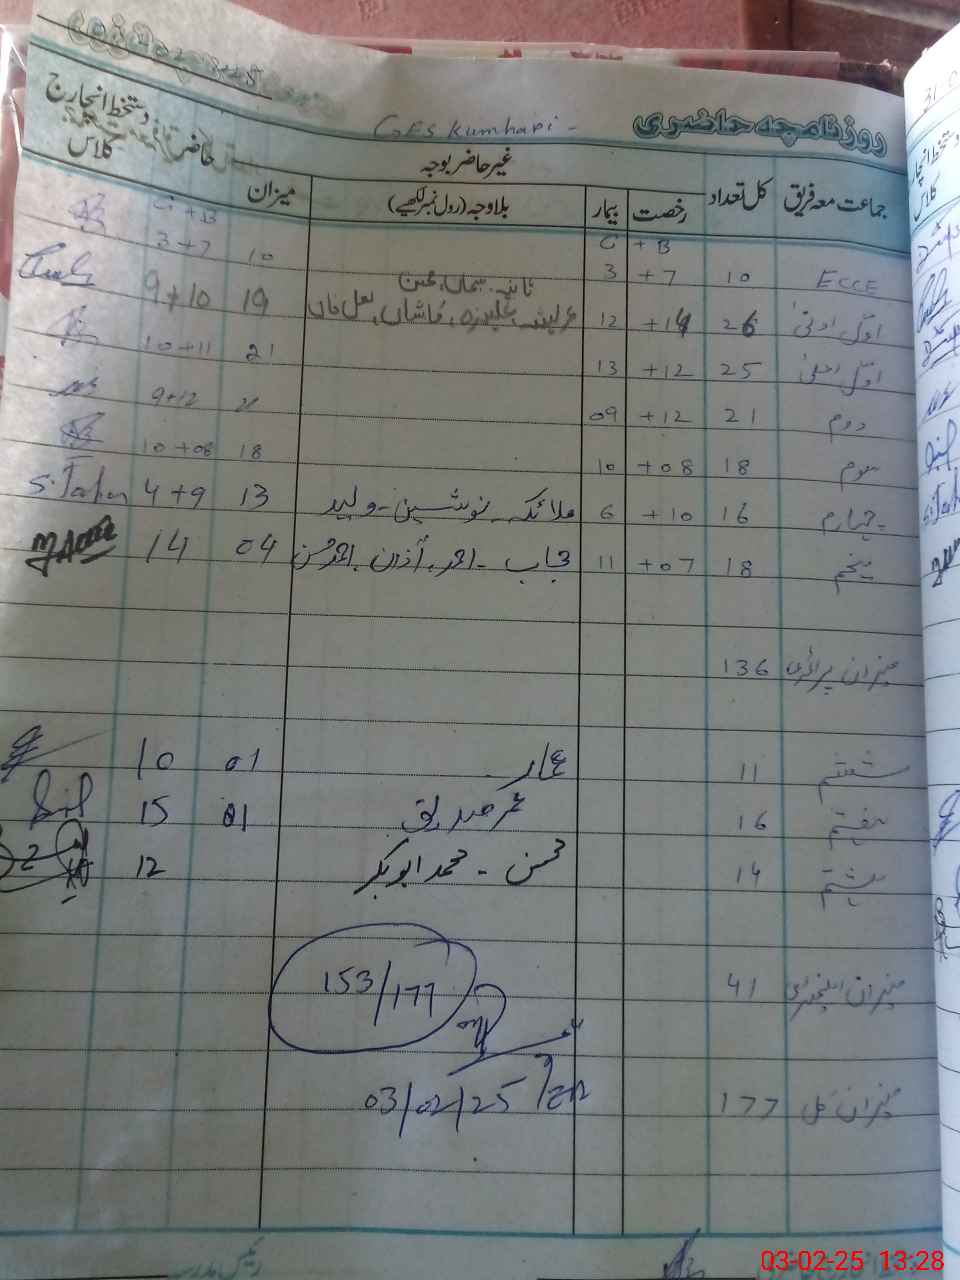 روزنامچہ حاضری
GES Kumhari -
جماعت معہ فریق کل تعداد غیر حاضر بوجہ میزان حاضر دستخط انچارج کلاس
رخصت بیمار بلاوجہ (رول نمبر لکھیے)
G + B G + B
ECCE 10 3 + 7 10 3 + 7
اوّل ادنیٰ 26 12 +14 19 9 + 10
اوّل اعلیٰ 25 13 +12 21 10 + 11
دوم 21 09 +12 21 9+12
سوم 18 10 +08 18 10 +08
چہارم 16 6 +10 ملائکہ - نوشین - ولید 13 4 + 9 S.Taher
پنجم 18 11 +07 حجاب - احمد، آذان، احمد حسن 04 14
میزان پرائمری 136
ششم 11 عمار 01 10
ہفتم 16 عمر صدیق 01 15
ہشتم 14 محسن - محمد ابوبکر 12
153/177
میزان ایلیمنٹری 41
03/02/25
میزان کل 177
رئیس مدرسہ
03-02-25 13:28